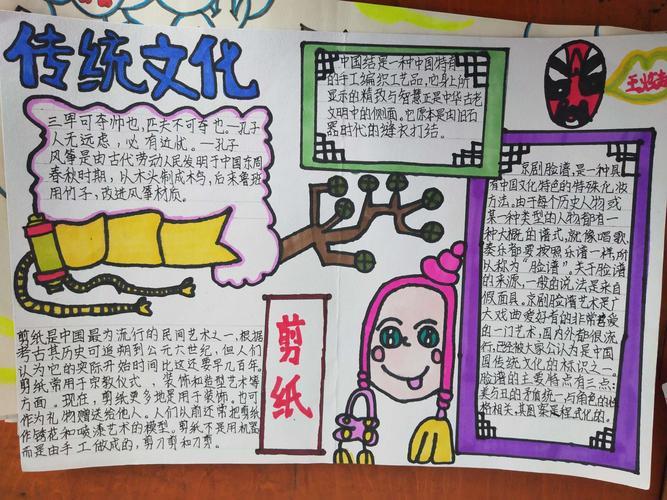 传统文化
三军可夺帅也,匹夫不可夺也。一孔子
人无远虑,必有近忧。一孔子
风筝是由古代劳动人民发明于中国东周
春秋时期,以木头制成木鸟,后来鲁班
用竹子,改进风筝材质。
中国结是一种中国特有
的手工编织工艺品,它身上所
显示的精致与智慧正是中华古老
文明中的侧面。它原本是由旧石
器时代的缝衣打结。
京剧脸谱,是一种具
有中国文化特色的特殊化妆
方法。由于每个历史人物或
某一种类型的人物都有一
种大概的谱式,就像唱歌、
奏乐都要按照乐谱一样,所
以称为“脸谱”。关于脸谱
的来源,一般的说法是来自
假面具。京剧脸谱艺术是广
大戏曲爱好者的非常喜爱
的一门艺术,国内外都很流
行,已经被大家公认为是中国
国传统文化的标识之一。
脸谱的主要特点有三点:
美与丑的矛盾统一与角色的性
格相关,其图案是程式化的。
剪纸是中国最为流行的民间艺术之一,根据
考古其历史可追朔到公元六世纪,但人们
认为它的实际开始时间比这还要早几百年。
剪纸常用于宗教仪式,装饰和造型艺术等
方面。现在,剪纸更多地是用于装饰。也可
作为礼物赠送给他人。人们从前还常把剪纸
作锈花和喷漆艺术的模型。剪纸不是用机器
而是由手工做成的,剪刀剪和刀剪。
剪纸